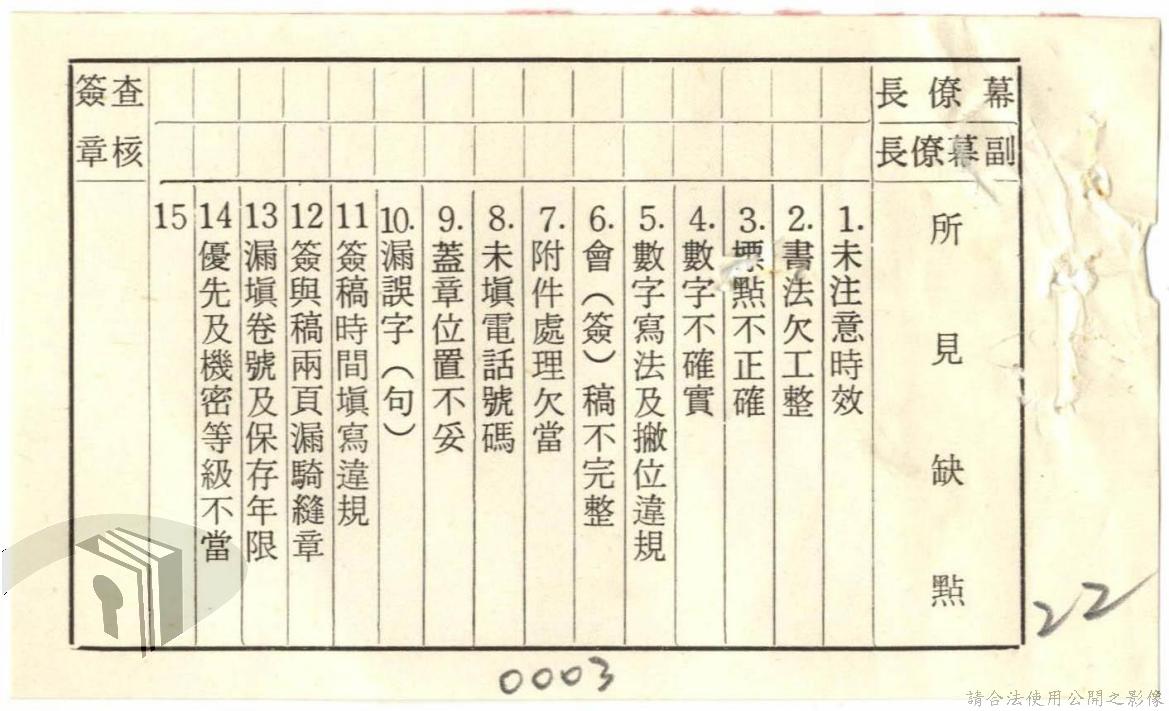 幕僚長
副幕僚長
所見缺點
1.未注意時效
2.書法欠工整
3.標點不正確
4.數字不確實
5.數字寫法及撇位違規
6.會（簽）稿不完整
7.附件處理欠當
8.未塡電話號碼
9.蓋章位置不妥
10.漏誤字（句）
11簽稿時間塡寫違規
12簽與稿兩頁漏騎縫章
13漏塡卷號及保存年限
14優先及機密等級不當
15
查核
簽章
22
0003
請合法使用公開之影像